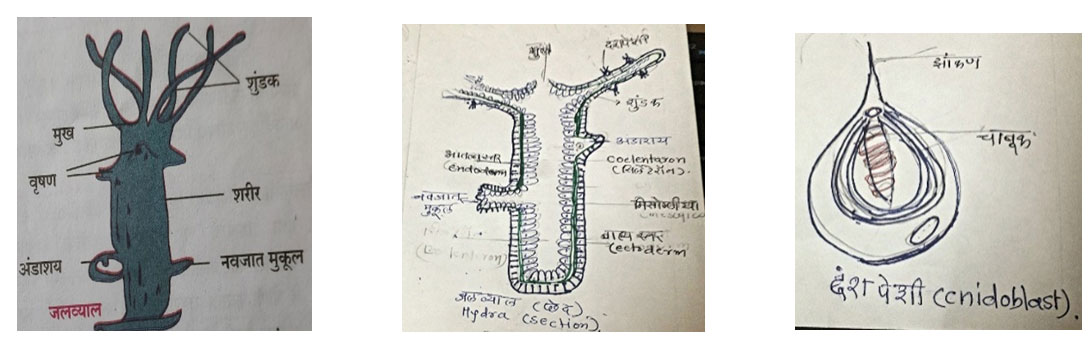 शुंडक
मुख
वृषण
शरीर
अंडाशय
नवजात मुकूल
जलव्याल
मुख
दंशपेशी
शुंडक
अंडाशय
(Endoderm)
Coelenteron
नवजात
मुकूल
बाह्य स्तर
(ectoderm
जलव्याल (छेद)
Hydra (section)
झांकण
चाबूक
दंश पेशी (cnidoblast).